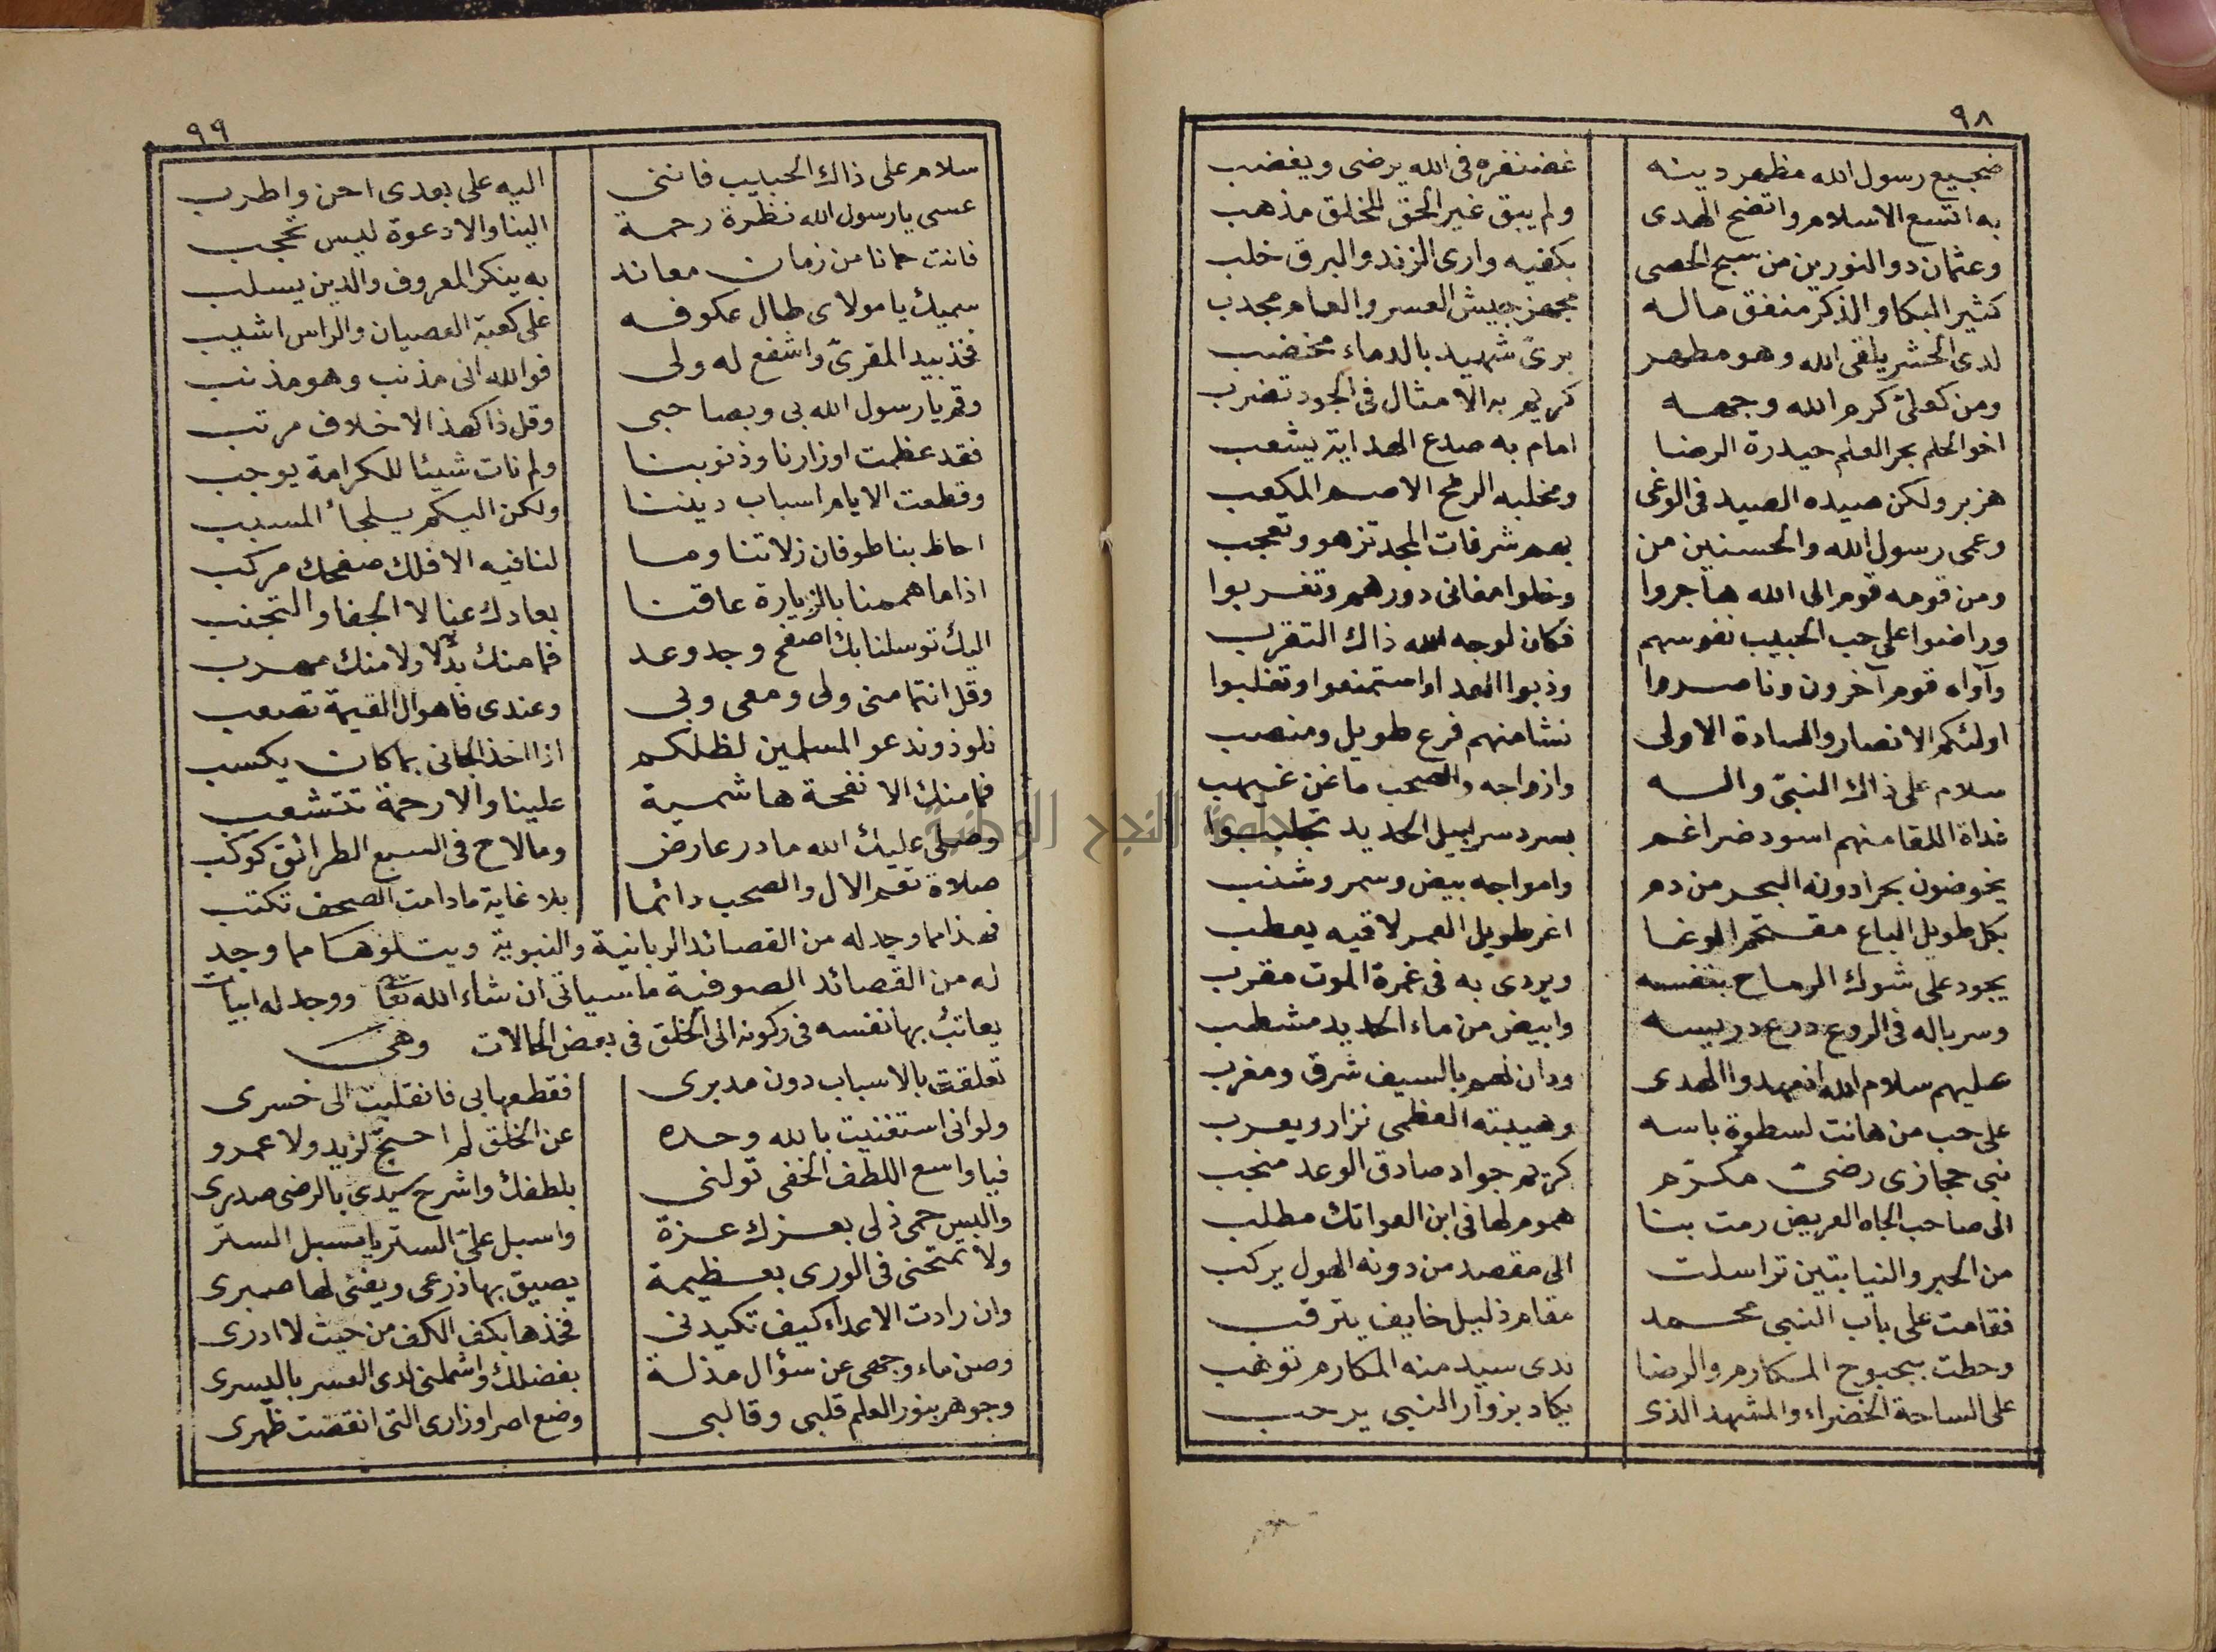 ٩٨
ضجيع رسول الله مظهر دينه غضنفره فى الله يرضى ويغضب
به اتسع الاسلام واتضح الهدى ولم يبق غير الحق للخلق مذهب
وعثمان ذو النورين من سبح الحصى بكفيه وارى الزند والبرق خلب
كثير البكا والذكر منفق ماله مجهز جيش العسر والعام مجدب
لدى الحشر يلقى الله وهو مطهر برئ شهيد بالدماء مخضب
ومن كعلىّ كرم الله وجهه كريم به الامثال فى الجود تضرب
اخو الحلم بحر العلم حيدرة الرضا امام به صدع الهداية يشعب
هزبر ولكن صيده الصيد فى الوغى ومخلبه الرمح الاصم المكعب
وعمى رسول الله والحسنين من بهم شرفات المجد تزهو وتعجب
ومن قومه قوم الى الله هاجروا وخلوا مغانى دورهم وتغربوا
وراضوا على حب الحبيب نفوسهم فكان لوجه الله ذاك التقرب
وآواه قوم آخرون وناصروا وذبوا العدا واستمنعوا وتغلبوا
اولئكم الانصار والسادة الاولى نشا منهم فرع طويل ومنصب
سلام على ذاك النبىّ واله وازواجه والصحب ما عن غيهب
غداة اللقا منهم اسود ضراغم بسرد سرابيل الحديد تجلببوا
يخوضون بحرا دونه البحر من دم وامواجه بيض وسمر وشذب
بكل طويل الباع مقتحم الوغا اغر طويل العمر لاقيه يعطب
يجود على شوك الرماح بنفسه ويردى به فى غمرة الموت مقرب
وسرباله فى الروع درع دريسه وابيض من ماء الحديد مشطب
عليهم سلام الله انهمدوا الهدى ودان لهم بالسيف شرق ومغرب
على حب من هانت لسطوة باسه وهيبته العظمى نزار ويعرب
نبى حجازى رضىّ مكرّم كريم جواد صادق الوعد منجب
الى صاحب الجاه العريض رمت بنا هموم لها فى ابن العواتك مطلب
من الحبر والنيابتين تراسلت الى مقصد من دونه الهول يركب
فقامت على باب النبى محمد مقام ذليل خايف يترقب
وحطت ببحبوح المكارم والرضا ندى سيد منه المكارم توهب
على الساحة الخضراء والمشهد الذى يكاد بزوار النبى يرحب
٩٩
سلام على ذاك الحبيب فاننى اليه على بعدى احن واطرب
عسى يا رسول الله نظرة رحمة الينا والا دعوة ليس تحجب
فانت حمانا من زمان معاند به ينكر المعروف والدين يسلب
سميك يا مولاى طال عكوفه على كعبة العصيان والراس اشيب
فخذ بيد المقرىّ واشفع له ولى فوالله انى مذنب وهو مذنب
وقم يا رسول الله بى وبصاحبى وقل ذا كهذا لا خلاف مرتب
فقد عظمت اوزارنا وذنوبنا ولم نات شيئا للكرامة يوجب
وقطعت الايام اسباب ديننا ولكن اليكم يلجأ المسبب
احاط بنا طوفان زلاتنا وما لنا فيه الا فلك صفحك مركب
اذا ما هممنا بالزيارة عاقنا بعادك عنا لا الجفا والتجنب
اليك توسلنا بك اصفح وجد وعد فما منك بدّ لا ولا منك مهرب
وقل انتما منى ولى ومعى وبى وعندى فاهوال القيمة تصعب
نلوذ وندعو المسلمين لظلكم اذا اخذ الجانى بما كان يكسب
فما منك الا نفحة هاشمية علينا والا رحمة تتشعب
وصلى عليك الله ما در عارض وما لاح فى السبع الطرائق كوكب
صلاة تعم الال والصحب دائما بلا غاية ما دامت الصحف تكتب
فهذا مما وجد له من القصائد الربانية والنبوية ويتلوها مما وجد
له من القصائد الصوفية ما سياتى ان شاء الله تعا ووجد له ابيات
يعاتب بها نفسه فى ركونه الى الخلق فى بعض الحالات وهى
تعلقت بالاسباب دون مدبرى فقطعها بى فانقلبت الى خسرى
ولو انى استغنيت بالله وحده عن الخلق لم احتج لزيد ولا عمرو
فيا واسع اللطف الخفى تولنى بلطفك واشرح سيدى بالرضى صدرى
والبس حمى ذلى بعزك عزة واسبل علىّ الستر يا مسبل الستر
ولا تمتحنى فى الورى بعظيمة يضيق بها ذرعى ويفنى لها صبرى
وان رادت الاعداء كيف تكيدنى فخذها بكف الكف من حيث لا ادرى
وصن ماء وجهى عن سؤال مذلة بفضلك واشملنى لدى العسر باليسرى
وجوهر بنور العلم قلبى وقالبى وضع اصر اوزارى التى انقضت ظهرى
جامعة النجاح الوطنية